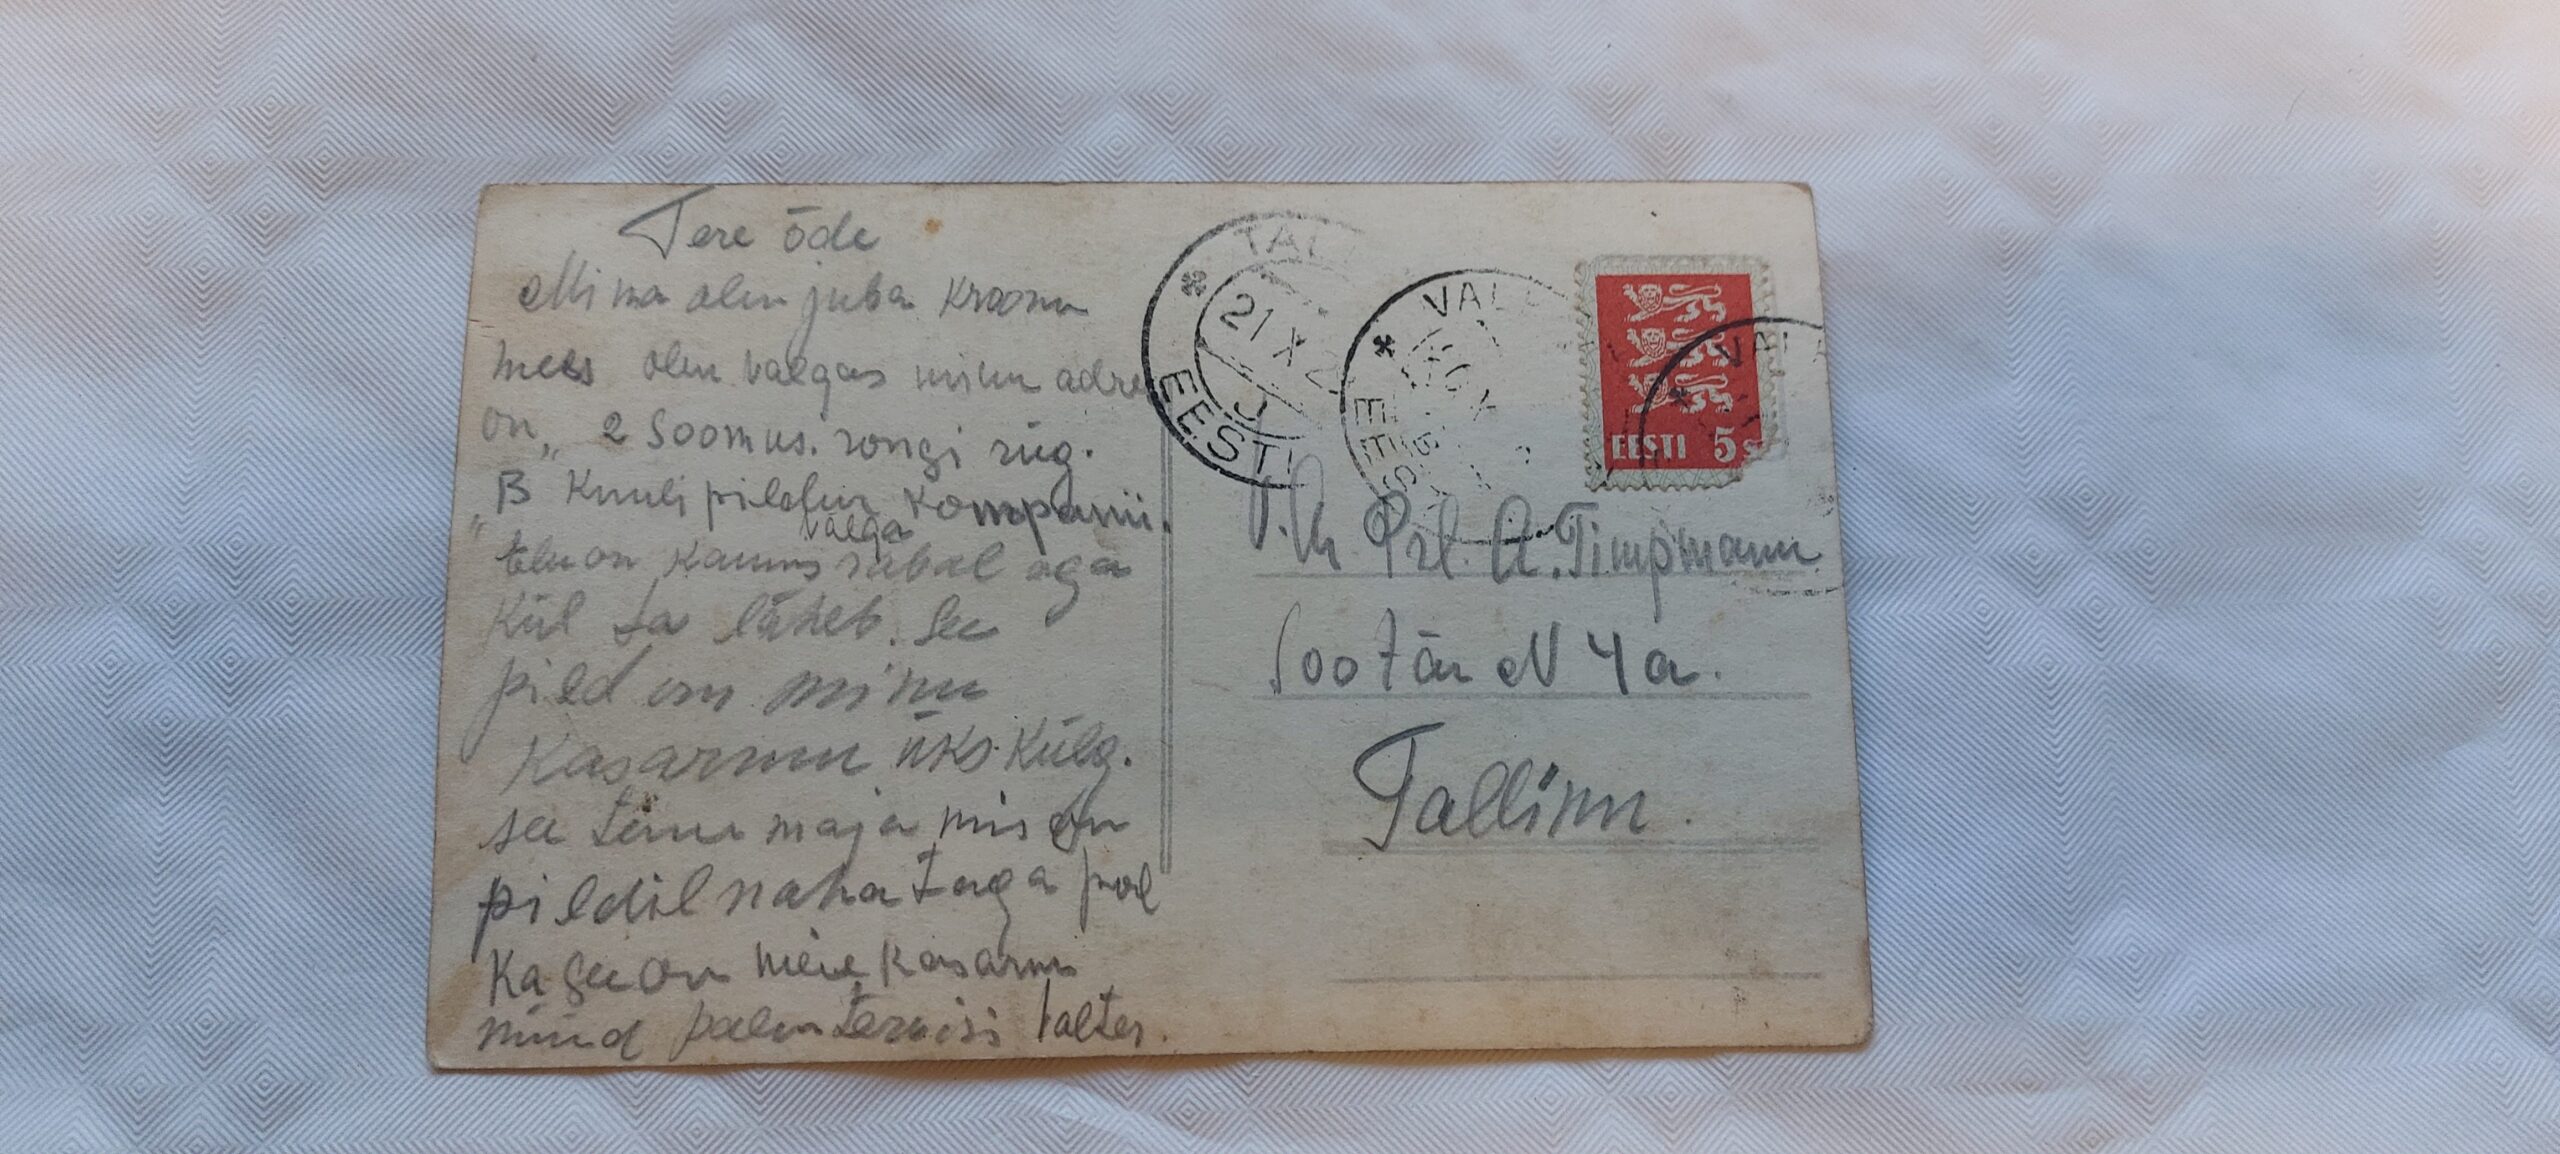 Tere õde
Mina olen juba Kroonu
mees olen valgas minu adre
on „ 2 Soomus. rongi rüg.
„B Kuuli pildur Kompanii.
valga
Elu on kaunis rabal aga
Kül ta läheb. See
pild on minu
Kasarmu üks Külg.
se teine maja mis on
pildil naha taga pool
Ka See on meie Kasarmu
nüüd palun tervisi Valter.
TALL
21 X 2
J
EESTI
VALG
EES
VALG
EESTI 5 s
V. A. Prl. A. Timpmann
Soo tän N 4a.
Tallinn.